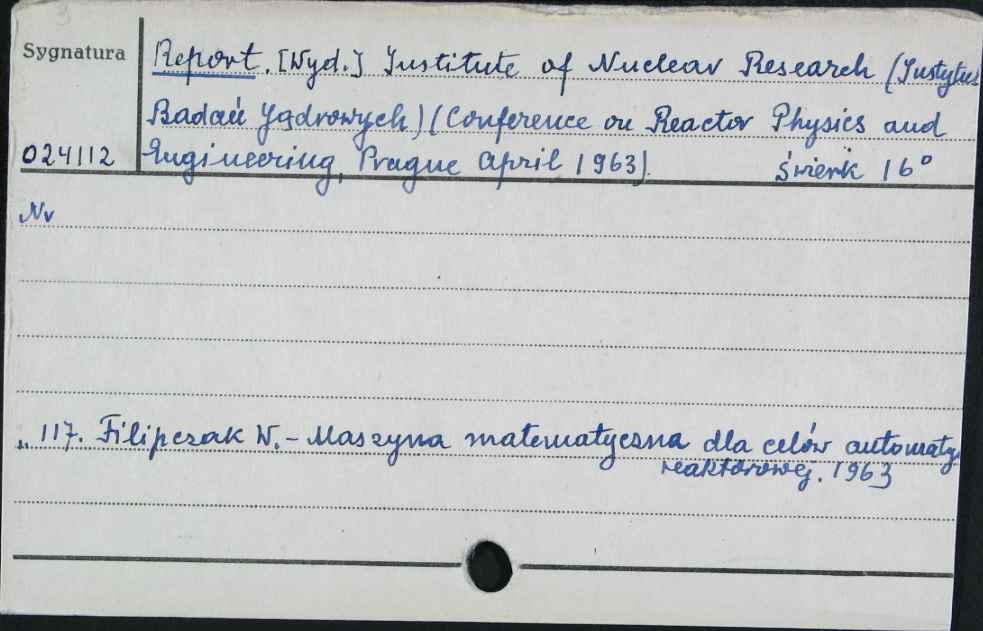 3
Sygnatura
Report. [Wyd.] Institute of Nuclear Research (Instytut
Badań Jądrowych) (Conference on Reactor Physics and
024112 Engineering, Prague April 1963). Świerk 16°
Nr
„ 117. Filipczak W. - Maszyna matematyczna dla celów automaty
reaktorowej. 1963